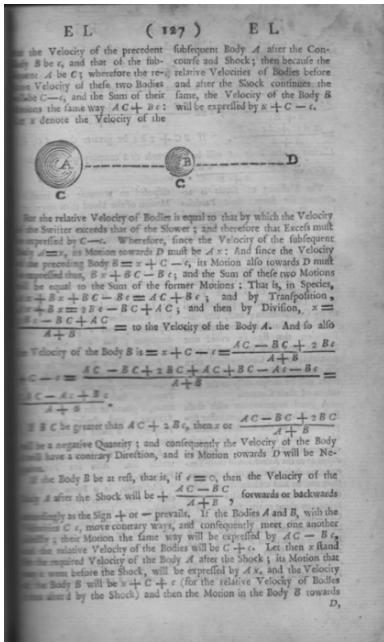 E L ( 127 ) E L
the Velocity of the precedent
B be c, and that of the sub-
A be C; wherefore the re-
Velocity of these two Bodies
be C—c, and the Sum of their
the same way AC + Bc:
x denote the Velocity of the
subsequent Body A after the Con-
course and Shock; then because the
relative Velocities of Bodies before
and after the Shock continues the
same, the Velocity of the Body B
will be expressed by x + C — c.
A B D
C C
For the relative Velocity of Bodies is equal to that by which the Velocity
of the Swifter exceeds that of the Slower; and therefore that Excess must
expressed by C—c. Wherefore, since the Velocity of the subsequent
A=x, its Motion towards D must be Ax: And since the Velocity
the preceding Body B = x + C — c, its Motion also towards D must
expressed thus, Bx + BC — Bc; and the Sum of these two Motions
be equal to the Sum of the former Motions: That is, in Species,
+ Bx + BC — Bc = AC + Bc; and by Transposition,
+ Bx = 2Bc — BC + AC; and then by Division, x =
— BC + AC
A + B
= to the Velocity of the Body A. And so also
Velocity of the Body B is = x + C — c = AC — BC + 2Bc
A + B
— c = AC — BC + 2BC + AC + BC — Ac — Bc =
A + B
BC — Ac + Bc
A + B .
If BC be greater than AC + 2Bc, then x or AC — BC + 2BC
A + B
be a negative Quantity; and consequently the Velocity of the Body
have a contrary Direction, and its Motion towards D will be Ne-
the Body B be at rest, that is, if c = 0, then the Velocity of the
A after the Shock will be + AC — BC
A + B , forwards or backwards
as the Sign + or — prevails. If the Bodies A and B, with the
C c, move contrary ways, and consequently meet one another
their Motion the same way will be expressed by AC — Bc,
and the relative Velocity of the Bodies will be C + c. Let then x stand
required Velocity of the Body A after the Shock; its Motion that
went before the Shock, will be expressed by Ax, and the Velocity
the Body B will be x + C + c (for the relative Velocity of Bodies
by the Shock) and then the Motion in the Body B towards
D,